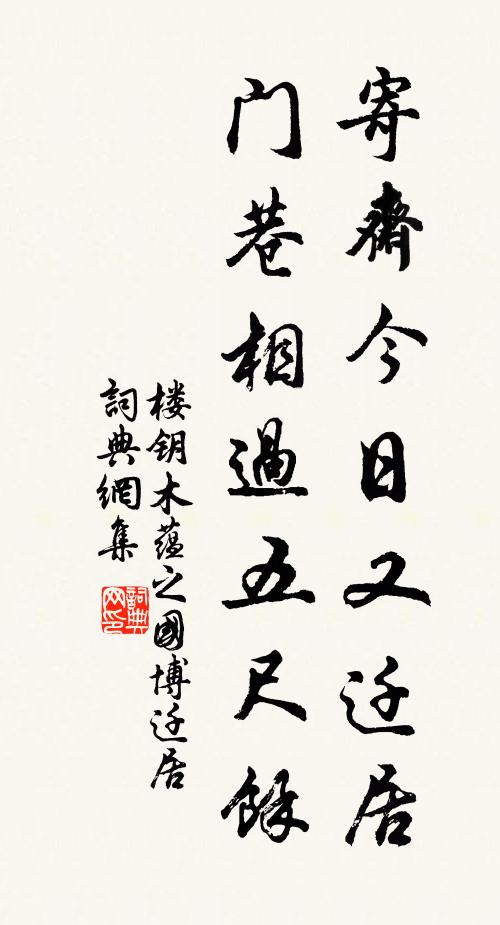 寄齋今日又迁居
门巷相過五尺餘
楼钥木蕴之國博迁居
詞典網集
詞典网印